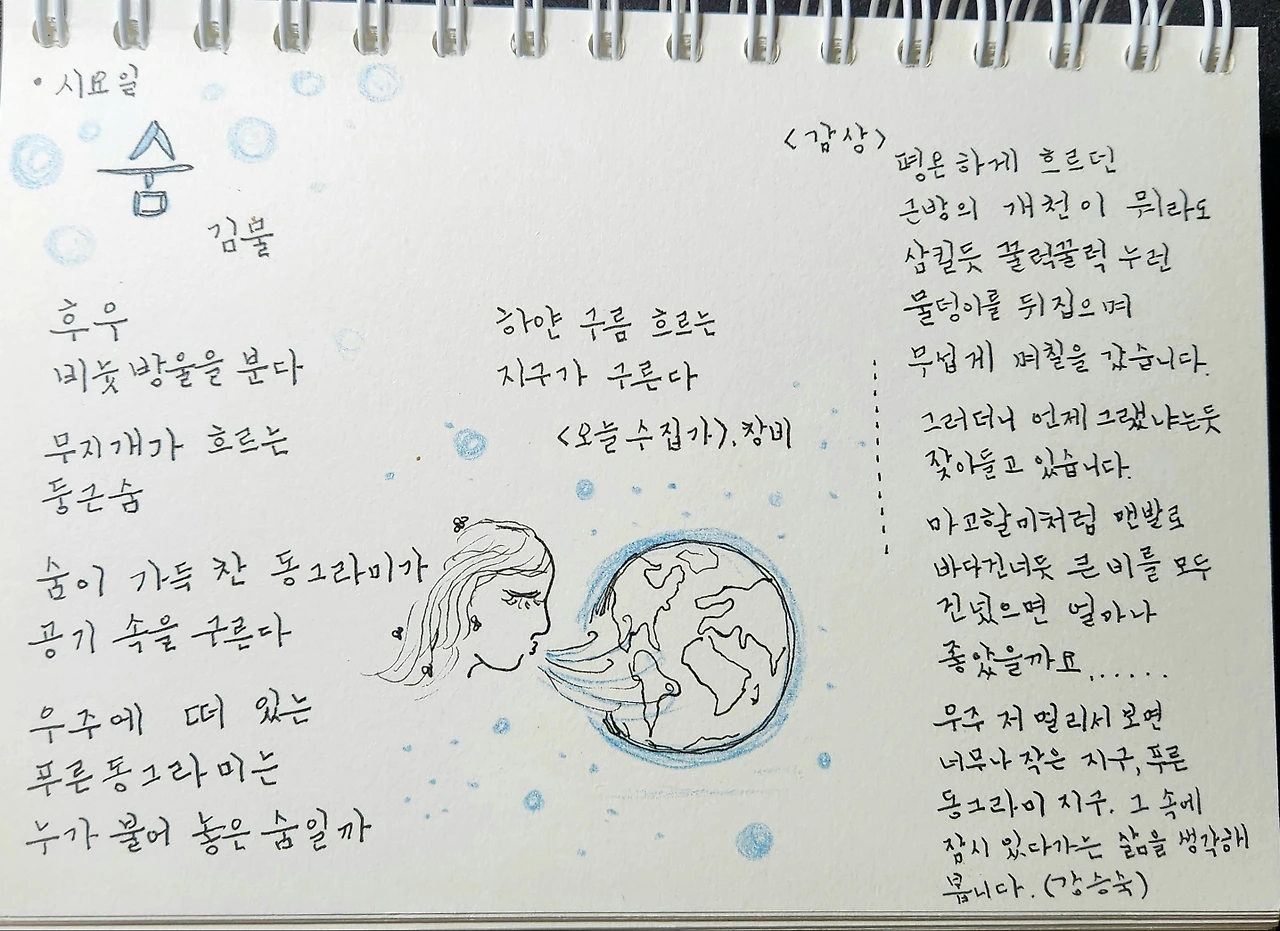 • 시요일
숨
김물
후우
비눗방울을 분다
무지개가 흐르는
둥근 숨
숨이 가득 찬 동그라미가
공기 속을 구른다
우주에 떠 있는
푸른 동그라미는
누가 불어 놓은 숨일까
하얀 구름 흐르는
지구가 구른다
<오늘 수집가>, 창비
<감상>
평온하게 흐르던
근방의 개천이 뭐라도
삼킬듯 꿀럭꿀럭 누런
물덩이를 뒤집으며
무섭게 며칠을 갔습니다.
그러더니 언제 그랬냐는듯
잦아들고 있습니다.
마고할미처럼 맨발로
바다건너듯 큰 비를 모두
건넜으면 얼마나
좋았을까요......
우주 저 멀리서 보면
너무나 작은 지구, 푸른
동그라미 지구. 그 속에
잠시 있다가는 삶을 생각해
봅니다. (강승숙)